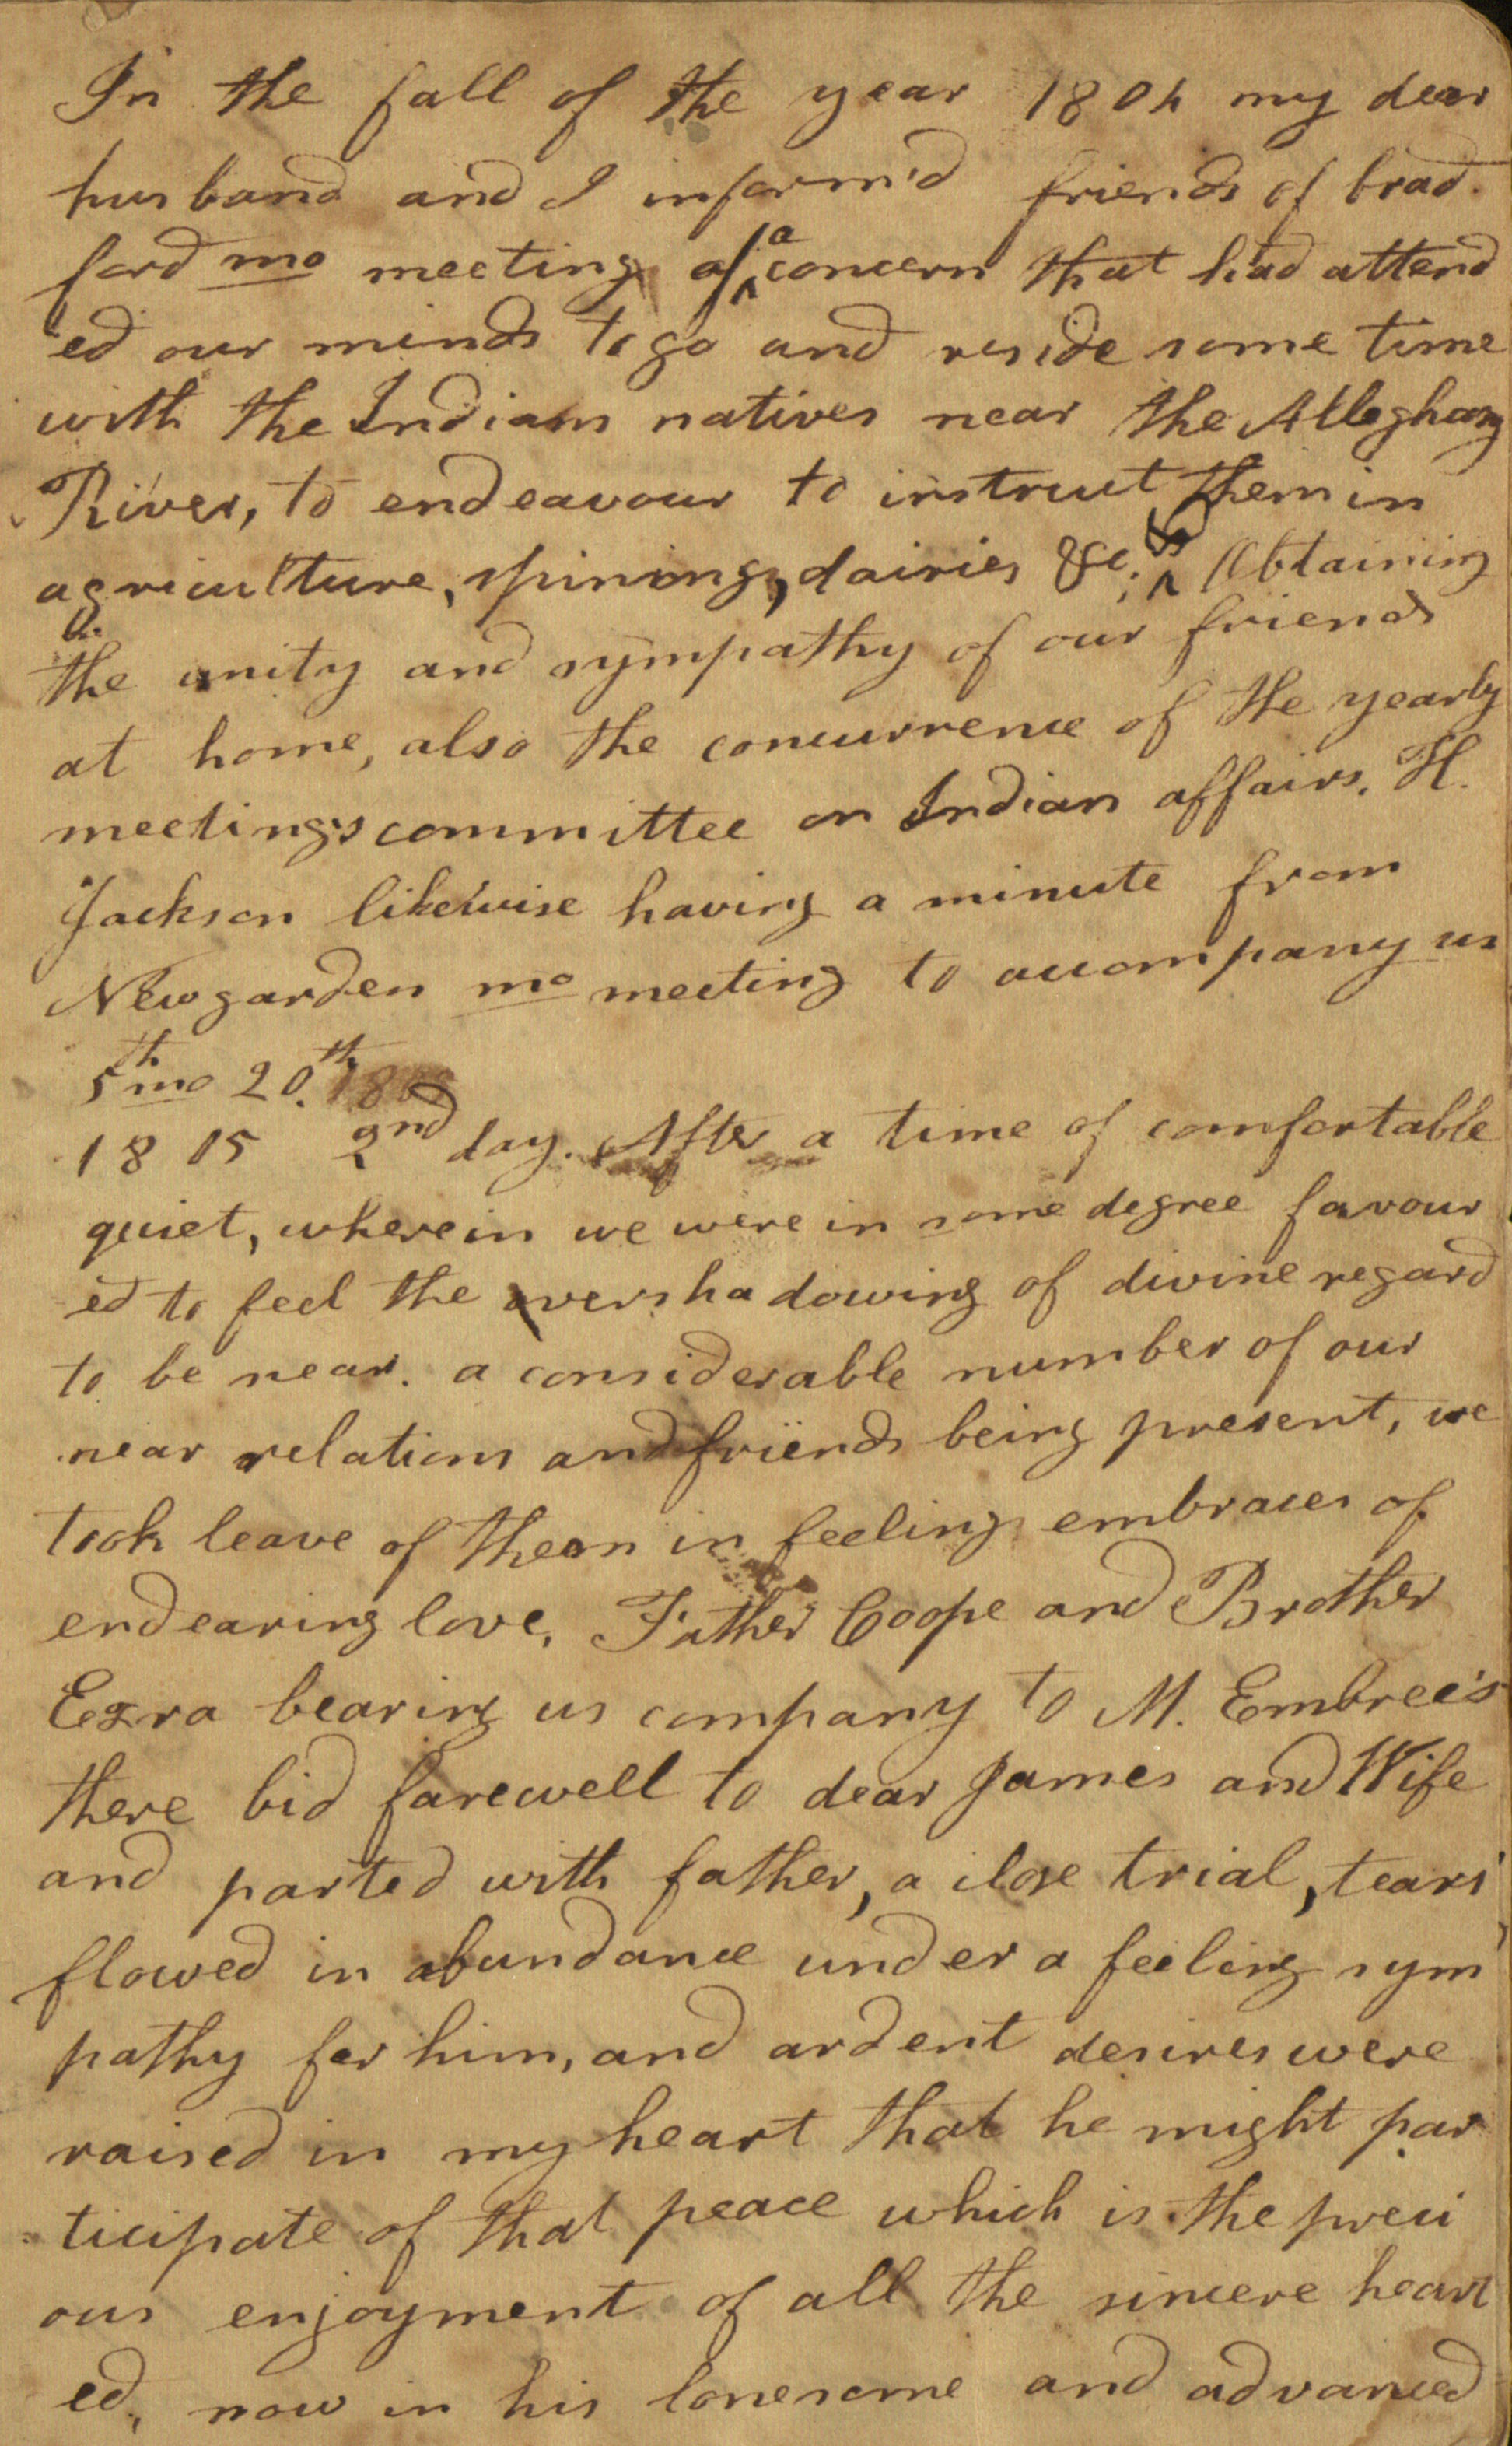 In the fall of the year 1804 my dear
husband and I inform'd friends of brad-
ford mo meeting of a concern that had attend
ed our minds to go and reside some time
with the Indian natives near the Alleghany
River, to endeavour to instruct them in
agriculture, spining, dairies &c; Obtaining
the unity and sympathy of our friends
at home, also the concurrence of the yearly
meetings committee on Indian affairs. H.
Jackson likewise having a minute from
Newgarden mo meeting to accompany us
5th mo 20.th
1805 2nd day. After a time of comfortable
quiet, wherein we were in some degree favour
ed to feel the overshadowing of divine regard
to be near. a considerable number of our
near relations and friends being present, we
took leave of them in feeling embraces of
endearing love, Father Coope and Brother
Ezra bearing us company to M. Embree's
there bid farewell to dear James and Wife
and parted with father, a close trial, tears
flowed in abundance under a feeling sym
pathy for him, and ardent desires were
raised in my heart that he might par
ticipate of that peace which is the preci
ous enjoyment of all the sincere heart
ed, now in his lonesome and advanced